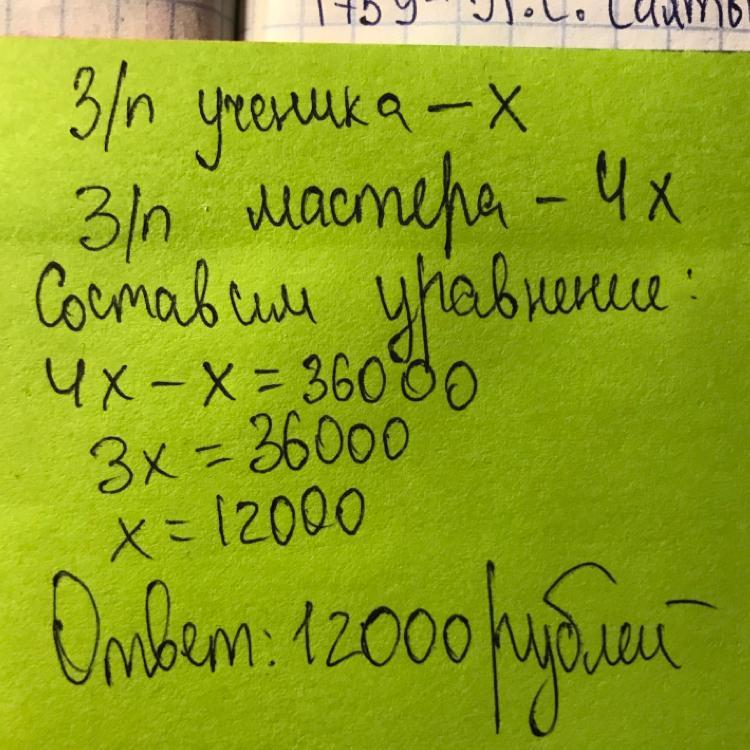 1759 Л.С. Сайты
З/п ученика – х
З/п мастера – 4х
Составим уравнение:
4х – х = 36000
3х = 36000
х = 12000
Ответ: 12000 рублей